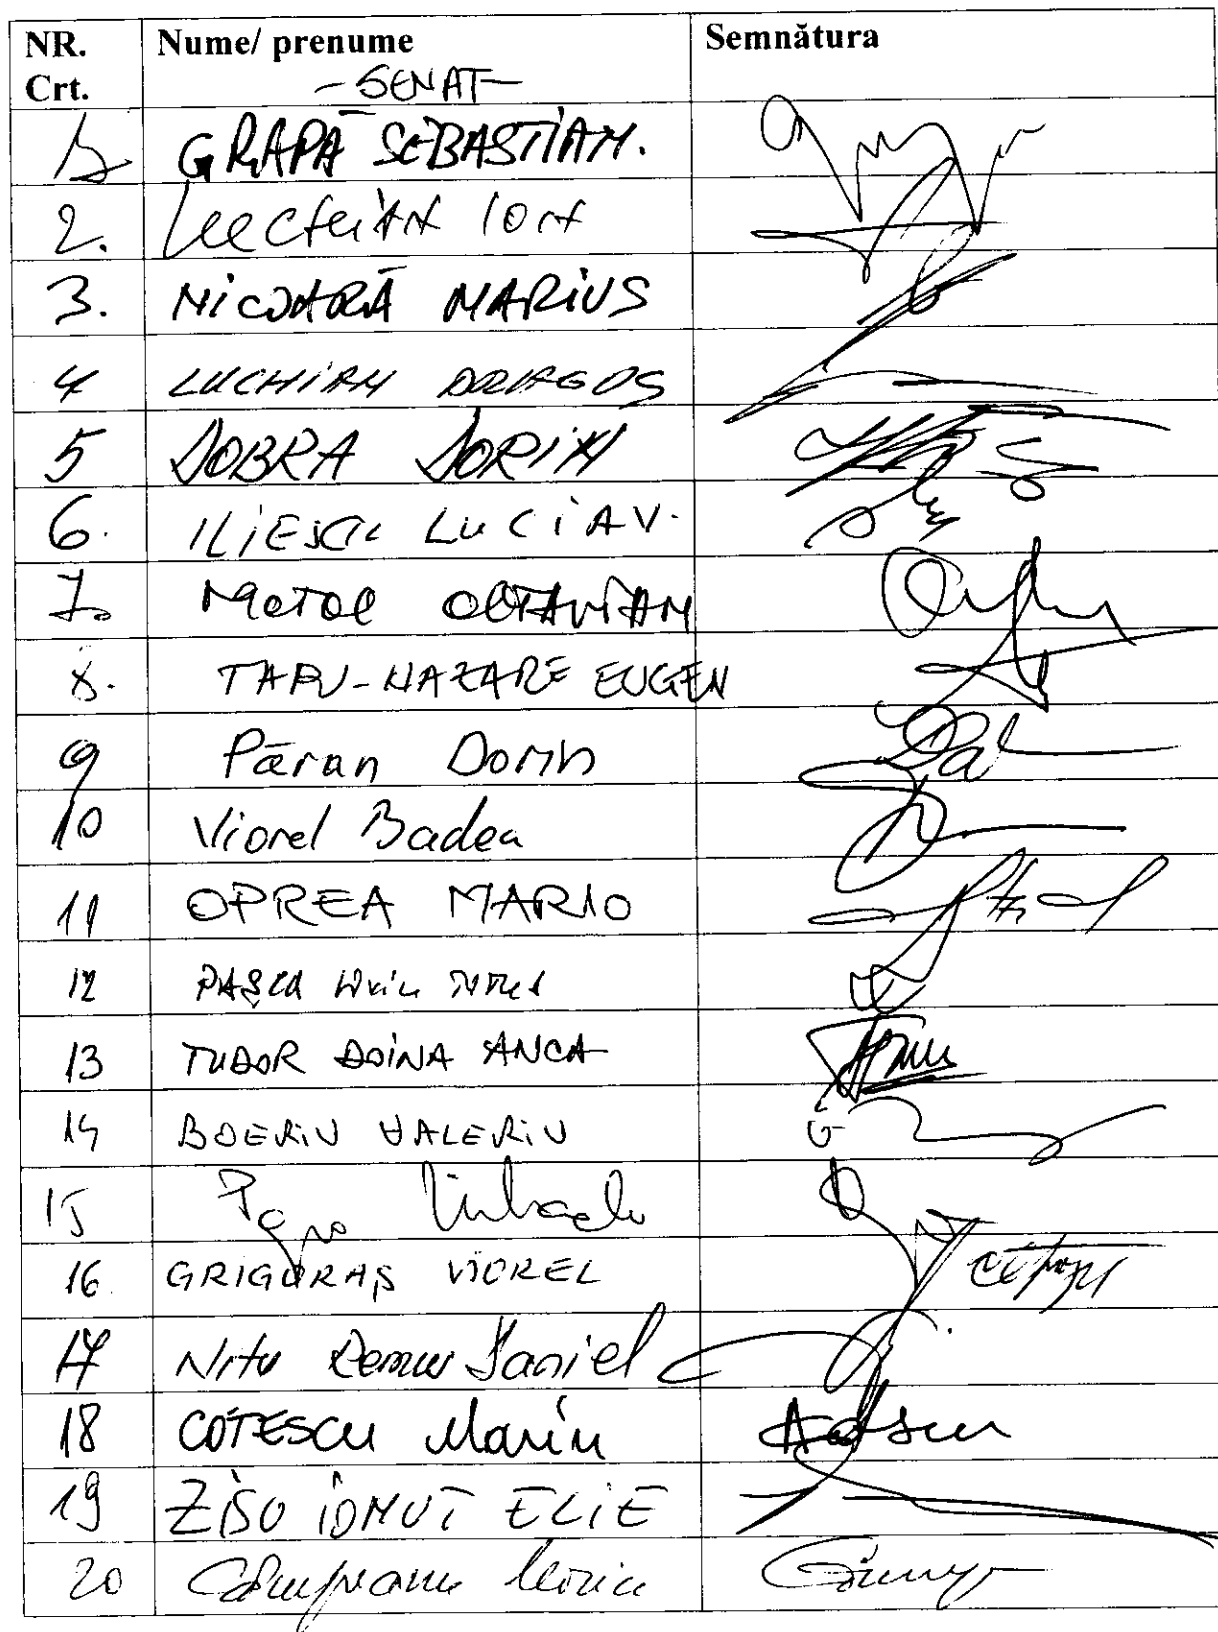 NR. Crt. Nume/ prenume Semnătura
- SENAT -
1. GRAPĂ SEBASTIAN.
2. Luchian Ion
3. NICOARĂ MARIUS
4 LUCHIAN DRAGOS
5 DOBRA DORIN
6. ILIESCU LUCIAN.
7. MOTOC OCTAVIAN
8. TAPU-NAZARE EUGEN
9 Păran Dorin
10 Viorel Badea
11 OPREA MARIO
12 PAŞCA
13 TUDOR DOINA ANCA
14 BOERIU VALERIU
15 Popa Mihaela
16 GRIGORAŞ VIOREL
17 Nitu Remus Daniel
18 COTESCU Marin
19 ZISU IONUT ELIE
20 Câmpeanu